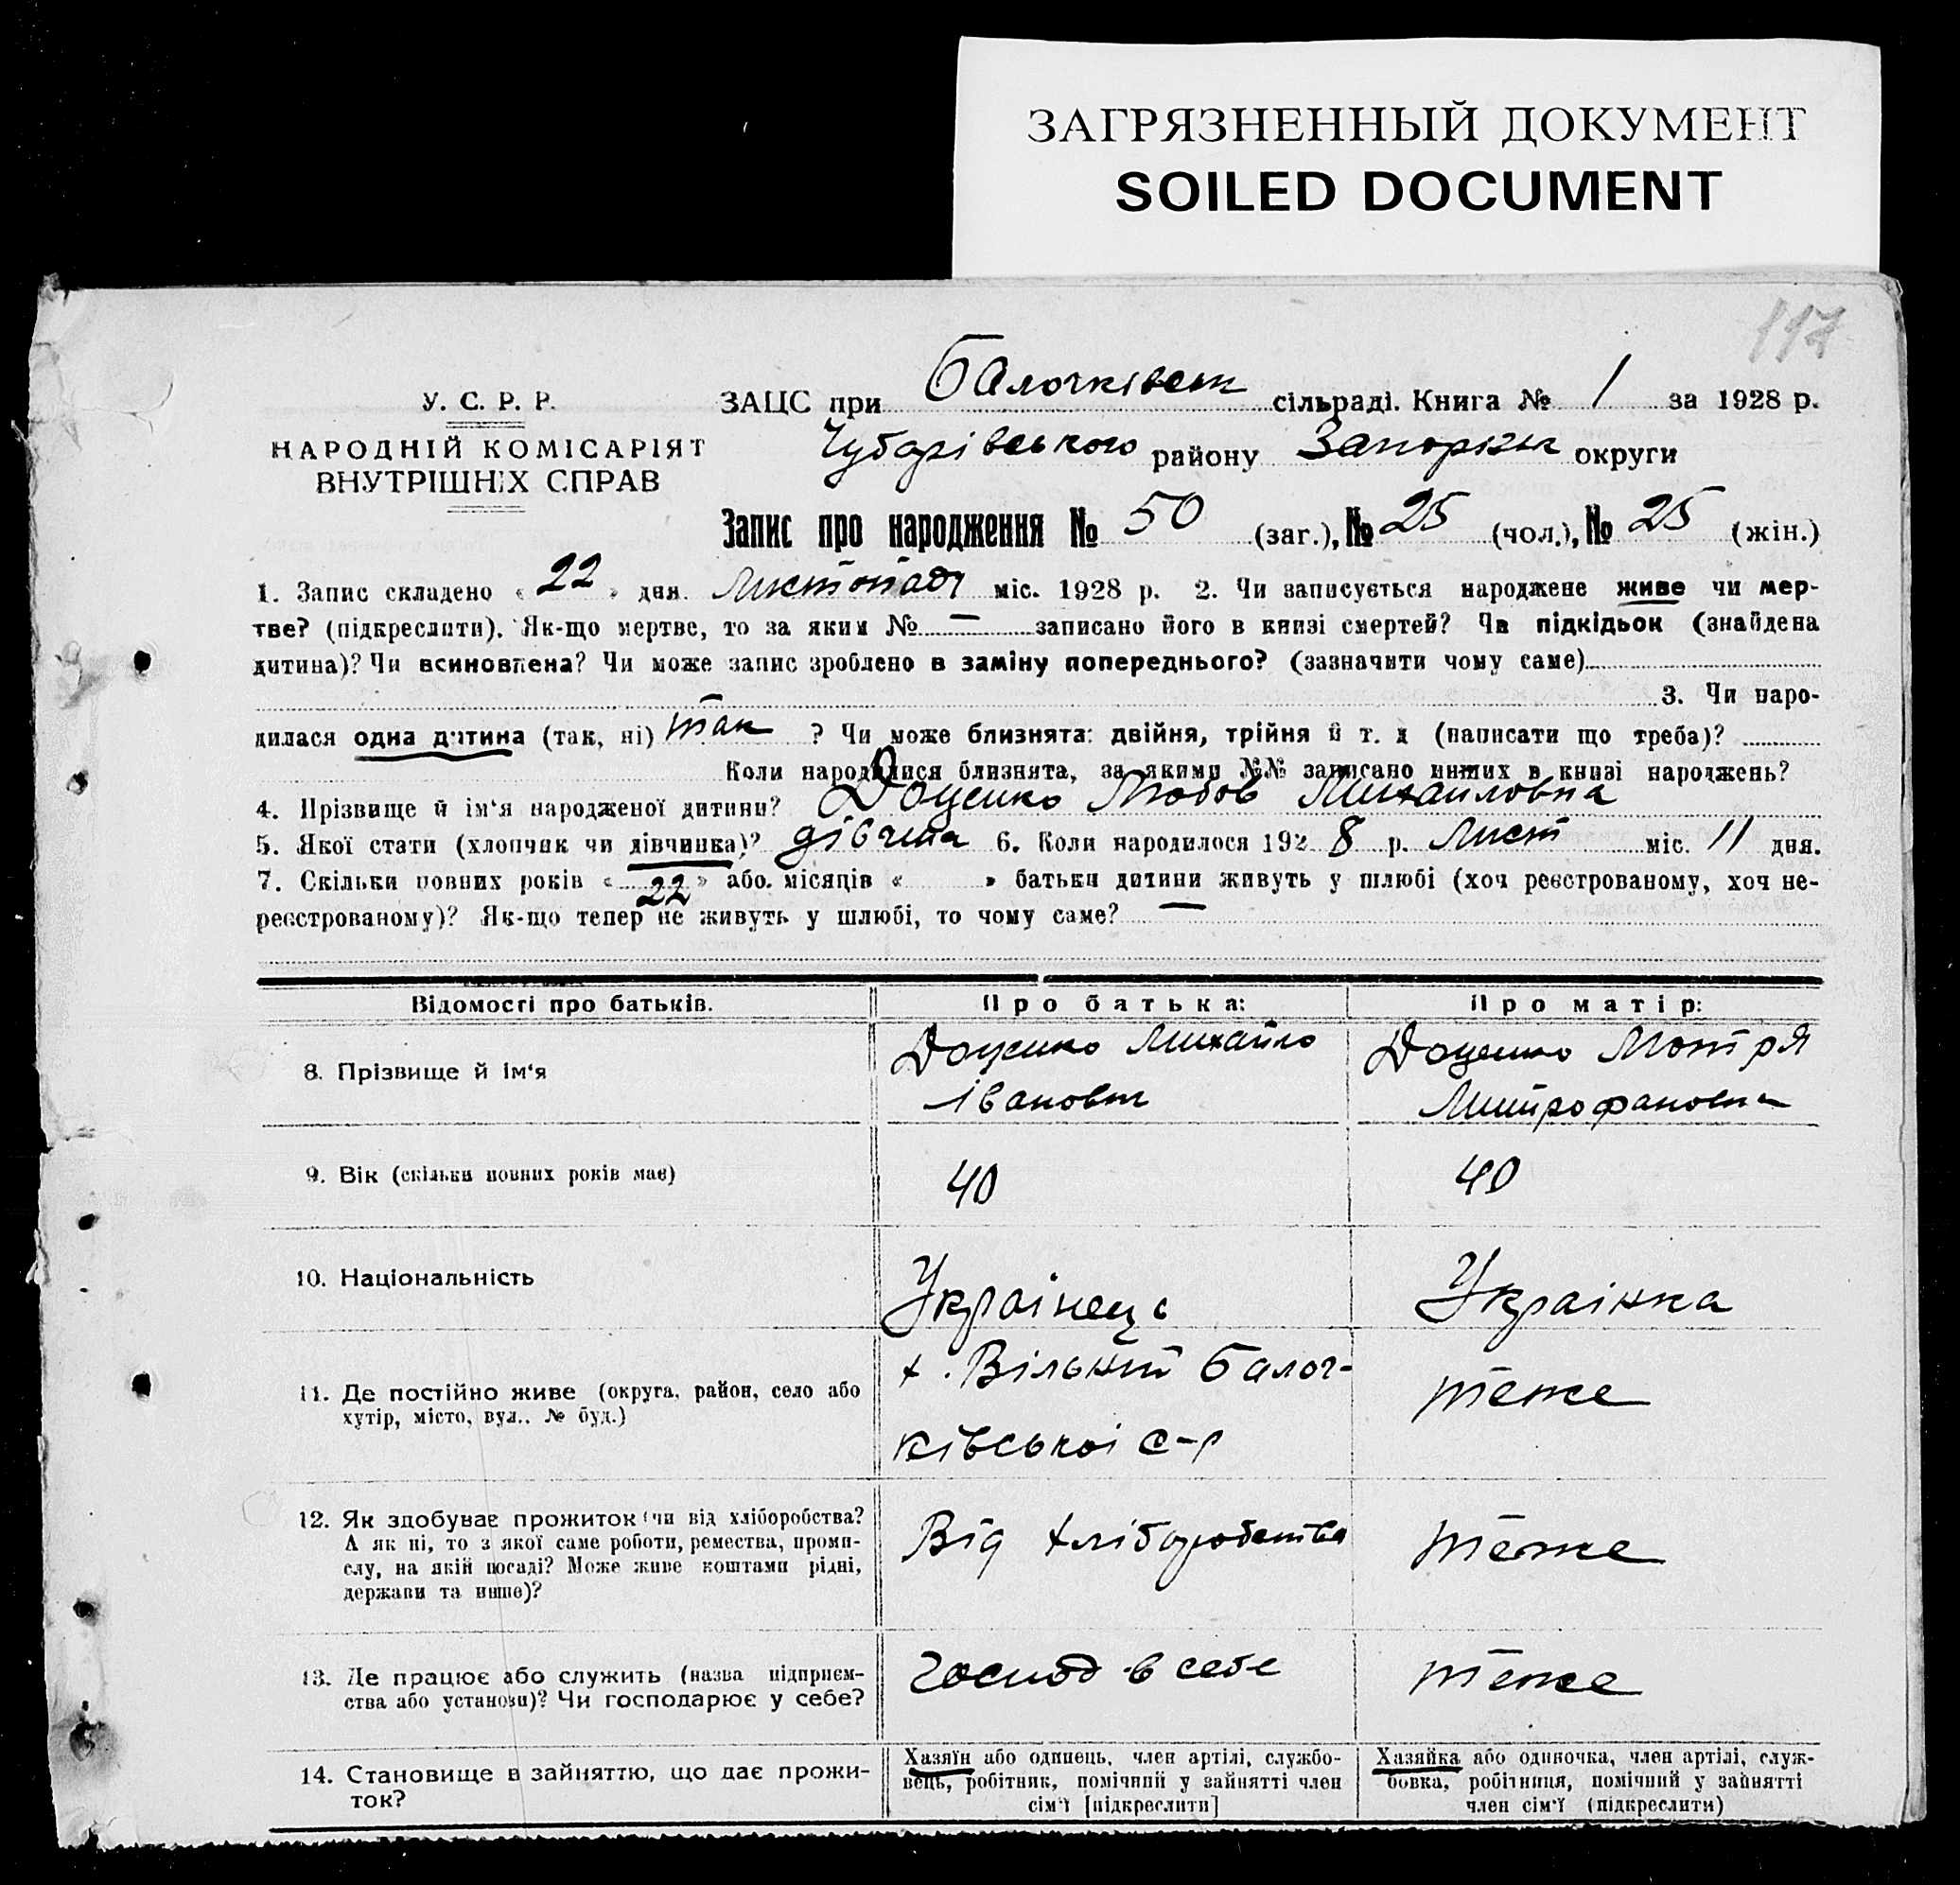 ЗАГРЯЗНЕННЫЙ ДОКУМЕНТ
SOILED DOCUMENT
117
У. С. Р. Р.
НАРОДНІЙ КОМІСАРІЯТ
ВНУТРІШНІХ СПРАВ
ЗАЦС при Балочківськ сільраді. Книга № 1 за 1928 р.
Чубарівського району Запорізьк округи
Запис про народження № 50 (заг.), № 25 (чол.), № 25 (жін.)
1. Запис складено « 22 » дня. Листопаду міс. 1928 р. 2. Чи записується народжене живе чи мер-
тве? (підкреслити). Як-що мертве, то за яким № — записано його в книзі смертей? Чи підкідьок (знайдена
дитина)? Чи всиновлена? Чи може запис зроблено в заміну попереднього? (зазначити чому саме)
3. Чи наро-
дилася одна дитина (так, ні) так ? Чи може близнята: двійня, трійня й т. д (написати що треба)?
Коли народилися близнята, за якими №№ записано инших в книзі народжень?
4. Прізвище й ім'я народженої дитини? Доценко Любов Михаиловна
5. Якої стати (хлопчик чи дівчинка)? дівчина 6. Коли народилося 192 8 р. Лист міс. 11 дня.
7. Скільки повних років « 22 » або місяців « » батьки дитини живуть у шлюбі (хоч реєстрованому, хоч не-
реєстрованому)? Як-що тепер не живуть у шлюбі, то чому саме? —
Відомості про батьків. Про батька: Про матір:
8. Прізвище й ім'я Доценко Михайло Івановит Доценко Мотря Митрофановна
9. Вік (скільки повних років має) 40 40
10. Національність Украінець Украінка
11. Де постійно живе (округа, район, село або
хутір, місто, вул.. № буд.) х. Вільний Балоч- теже
ківськоі с-р
12. Як здобуває прожиток (чи від хліборобства?
А як ні, то з якої саме роботи, ремества, проми-
слу, на якій посаді? Може живе коштами рідні,
держави та инше)? Від хліборобства теже
13. Де працює або служить (назва підприєм-
ства або установи)? Чи господарює у себе? господ в себе теже
14. Становище в зайняттю, що дає прожи-
ток?
Хазяїн або одинець, член артілі, службо-
вець, робітник, помічний у зайнятті член
сім'ї [підкреслити]
Хазяйка або одиночка, член артілі, служ-
бовка, робітниця, помічний у зайнятті
член сім'ї (підкреслити)